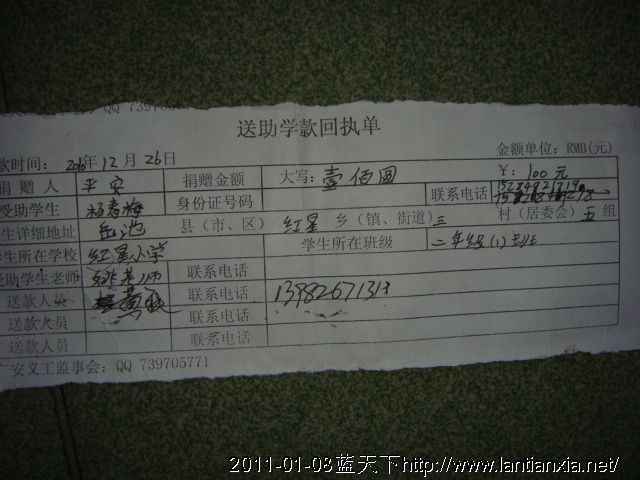 QQ 7397
送助学款回执单
款时间: 2010年12月26日
金额单位: RMB(元)
捐赠人 平安 捐赠金额 大写: 壹佰圆 ¥: 100元
受助学生 杨春梅 身份证号码 联系电话
生详细地址 岳池 县(市、区) 红星 乡(镇、街道) 三 村(居委会) 五 组
学生所在学校 红星小学 学生所在班级 二年级(1)班
受助学生老师 姚老师 联系电话
送款人员 联系电话 1398267131
送款人员 联系电话
送款人员 联系电话
安义工监事会: QQ 739705771
2011-01-08蓝天下http://www.lantianxia.net/